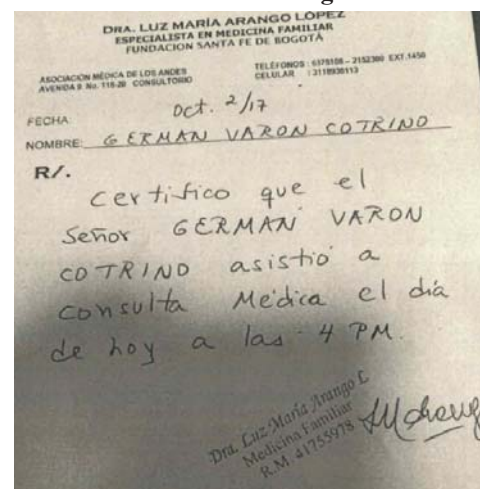 DRA. LUZ MARÍA ARANGO LÓPEZ
ESPECIALISTA EN MEDICINA FAMILIAR
FUNDACION SANTA FE DE BOGOTÁ
ASOCIACIÓN MÉDICA DE LOS ANDES
AVENIDA 9 No. 116-20 CONSULTORIO
TELÉFONOS : 2152300 EXT.1450
CELULAR :
FECHA: Oct. 2/17
NOMBRE: GERMAN VARON COTRINO
R/.
Certifico que el
Señor GERMAN VARON
COTRINO asistió a
consulta Médica el día
de hoy a las 4 PM.
Dra. Luz María Arango L
Medicina Familiar
R.M. 41755978